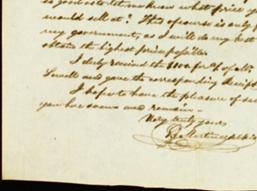 so good as to let me know what price you
would sell at? This of course is only for
my government, as I will do my best to
obtain the highest price possible.
I duly received the for of
Lowell and gave the corresponding receipt.
I hope to have the pleasure of
you here soon and remain
Very truly yours